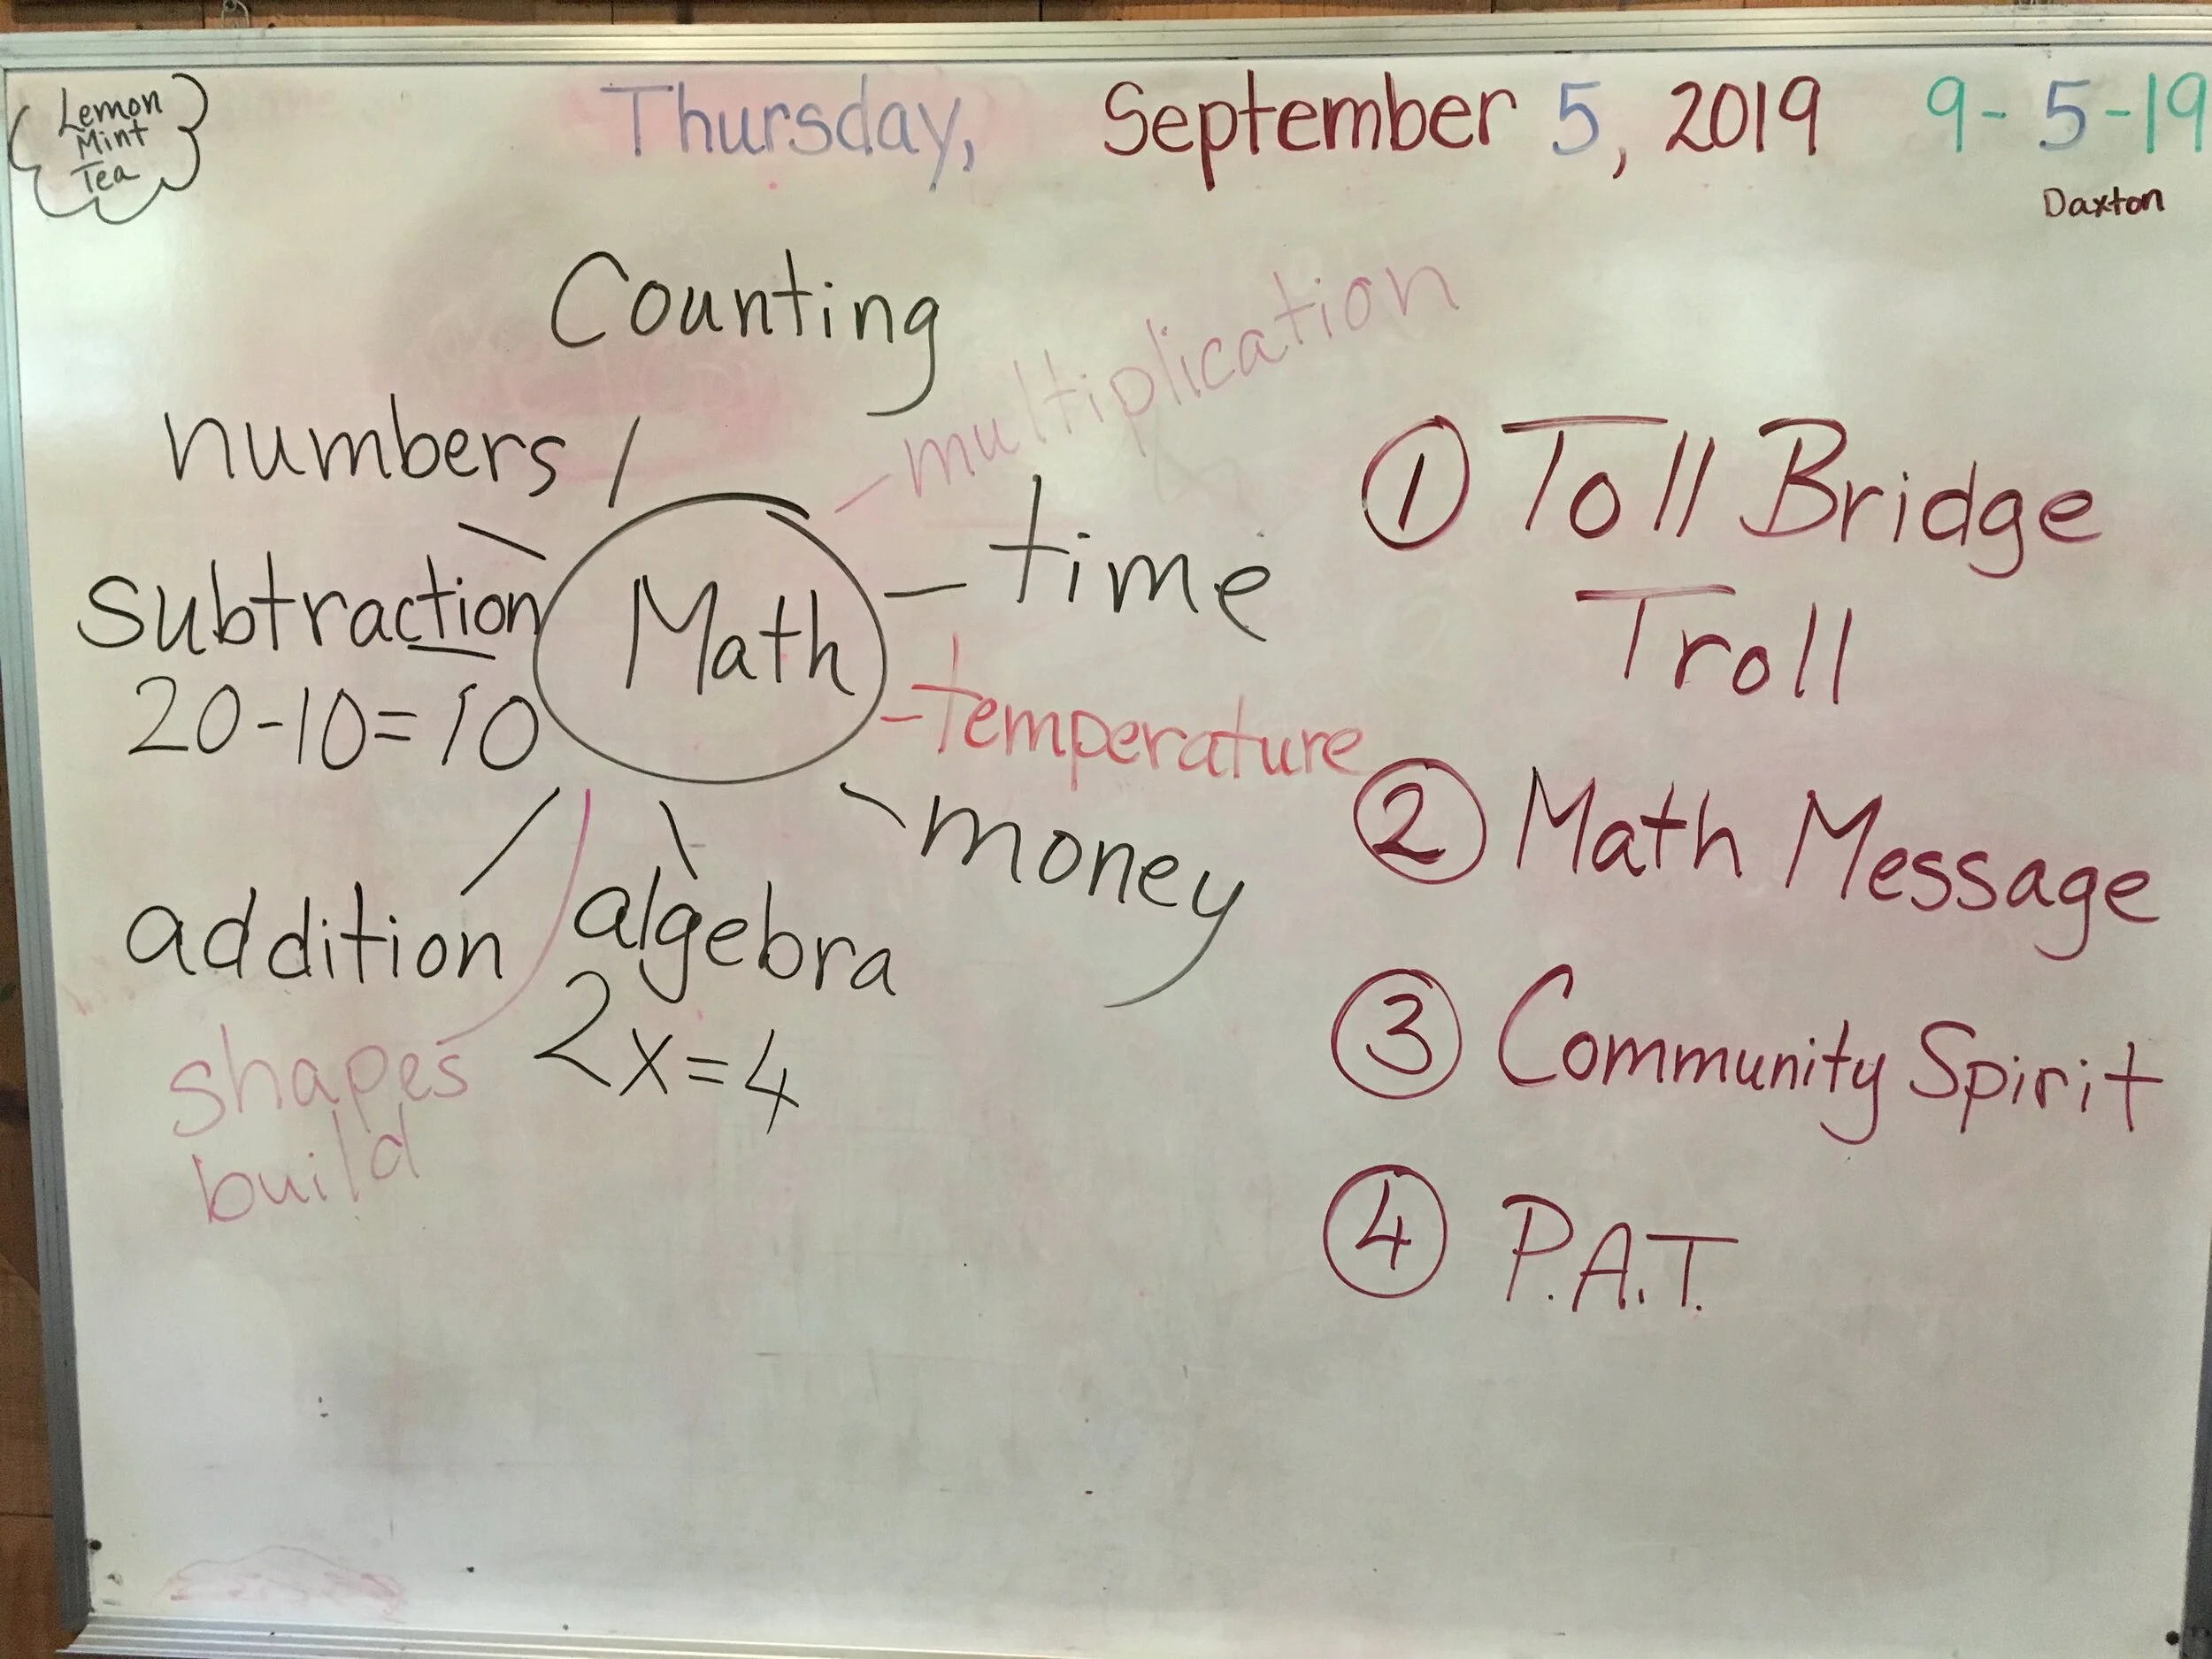 Lemon
Mint
Tea
Thursday, September 5, 2019 9-5-19
Daxton
Counting
multiplication
numbers
time
subtraction
20-10=10
Math
temperature
money
addition
algebra
2x=4
shapes
build
1 Toll Bridge
Troll
2 Math Message
3 Community Spirit
4 P.A.T.